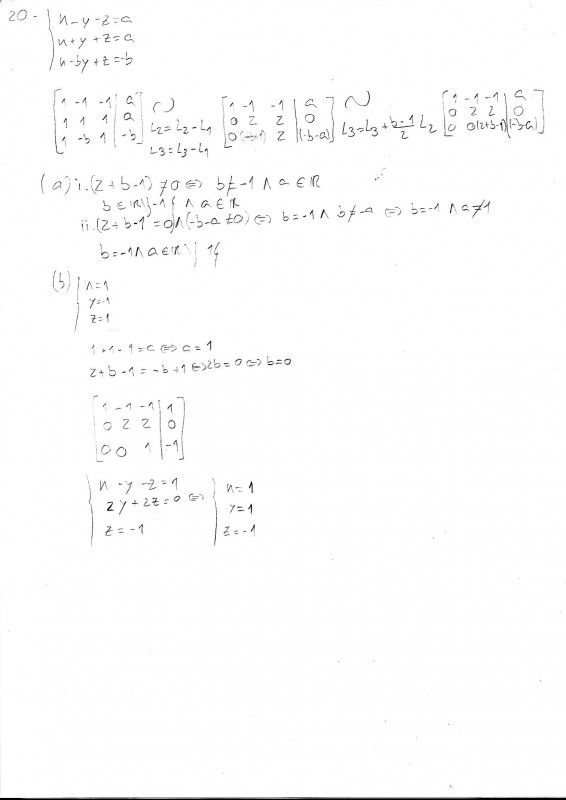 20-
{ x - y - z = a
x + y + z = a
x - by + z = -b
[ 1 -1 -1 | a
1 1 1 | a
1 -b 1 | -b ] ~ L2 = L2 - L1
L3 = L3 - L1
[ 1 -1 -1 | a
0 2 2 | 0
0 (-b+1) 2 | (-b-a) ] ~ L3 = L3 + b-1/2 L2
[ 1 -1 -1 | a
0 2 2 | 0
0 0 (2+b-1) | (-b-a) ]
(a) i. (2+b-1) ≠ 0 ⇔ b ≠ -1 ∧ a ∈ ℝ
b ∈ ℝ\}-1{ ∧ a ∈ ℝ
ii. (2+b-1 = 0) ∧ (-b-a ≠ 0) ⇔ b = -1 ∧ b ≠ -a ⇔ b = -1 ∧ a ≠ 1
b = -1 ∧ a ∈ ℝ \ } 1{
(b) { x = 1
y = -1
z = 1
1 + 1 - 1 = a ⇔ a = 1
2 + b - 1 = -b + 1 ⇔ 2b = 0 ⇔ b = 0
[ 1 -1 -1 | 1
0 2 2 | 0
0 0 1 | -1 ]
{ x - y - z = 1
2y + 2z = 0 ⇔
z = -1
{ x = 1
y = 1
z = -1